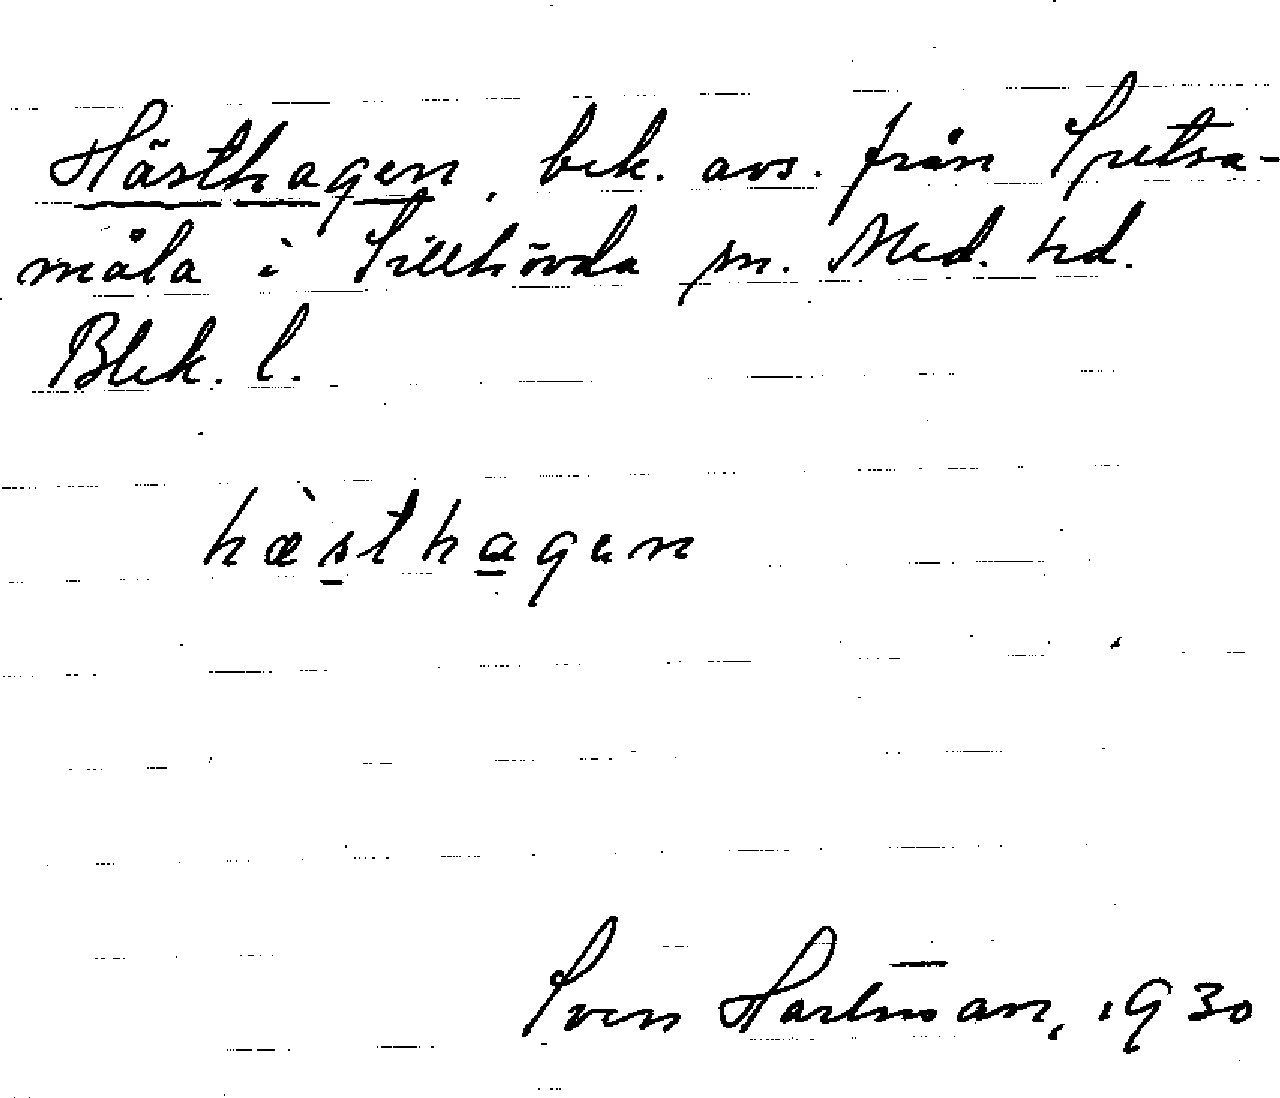 Hästhagen, bek. avs. från Spetsa-
måla i Tillhövda sn. Med. hd.
Blek. l.
hæ̀sthagen
Sven Hartman, 1930